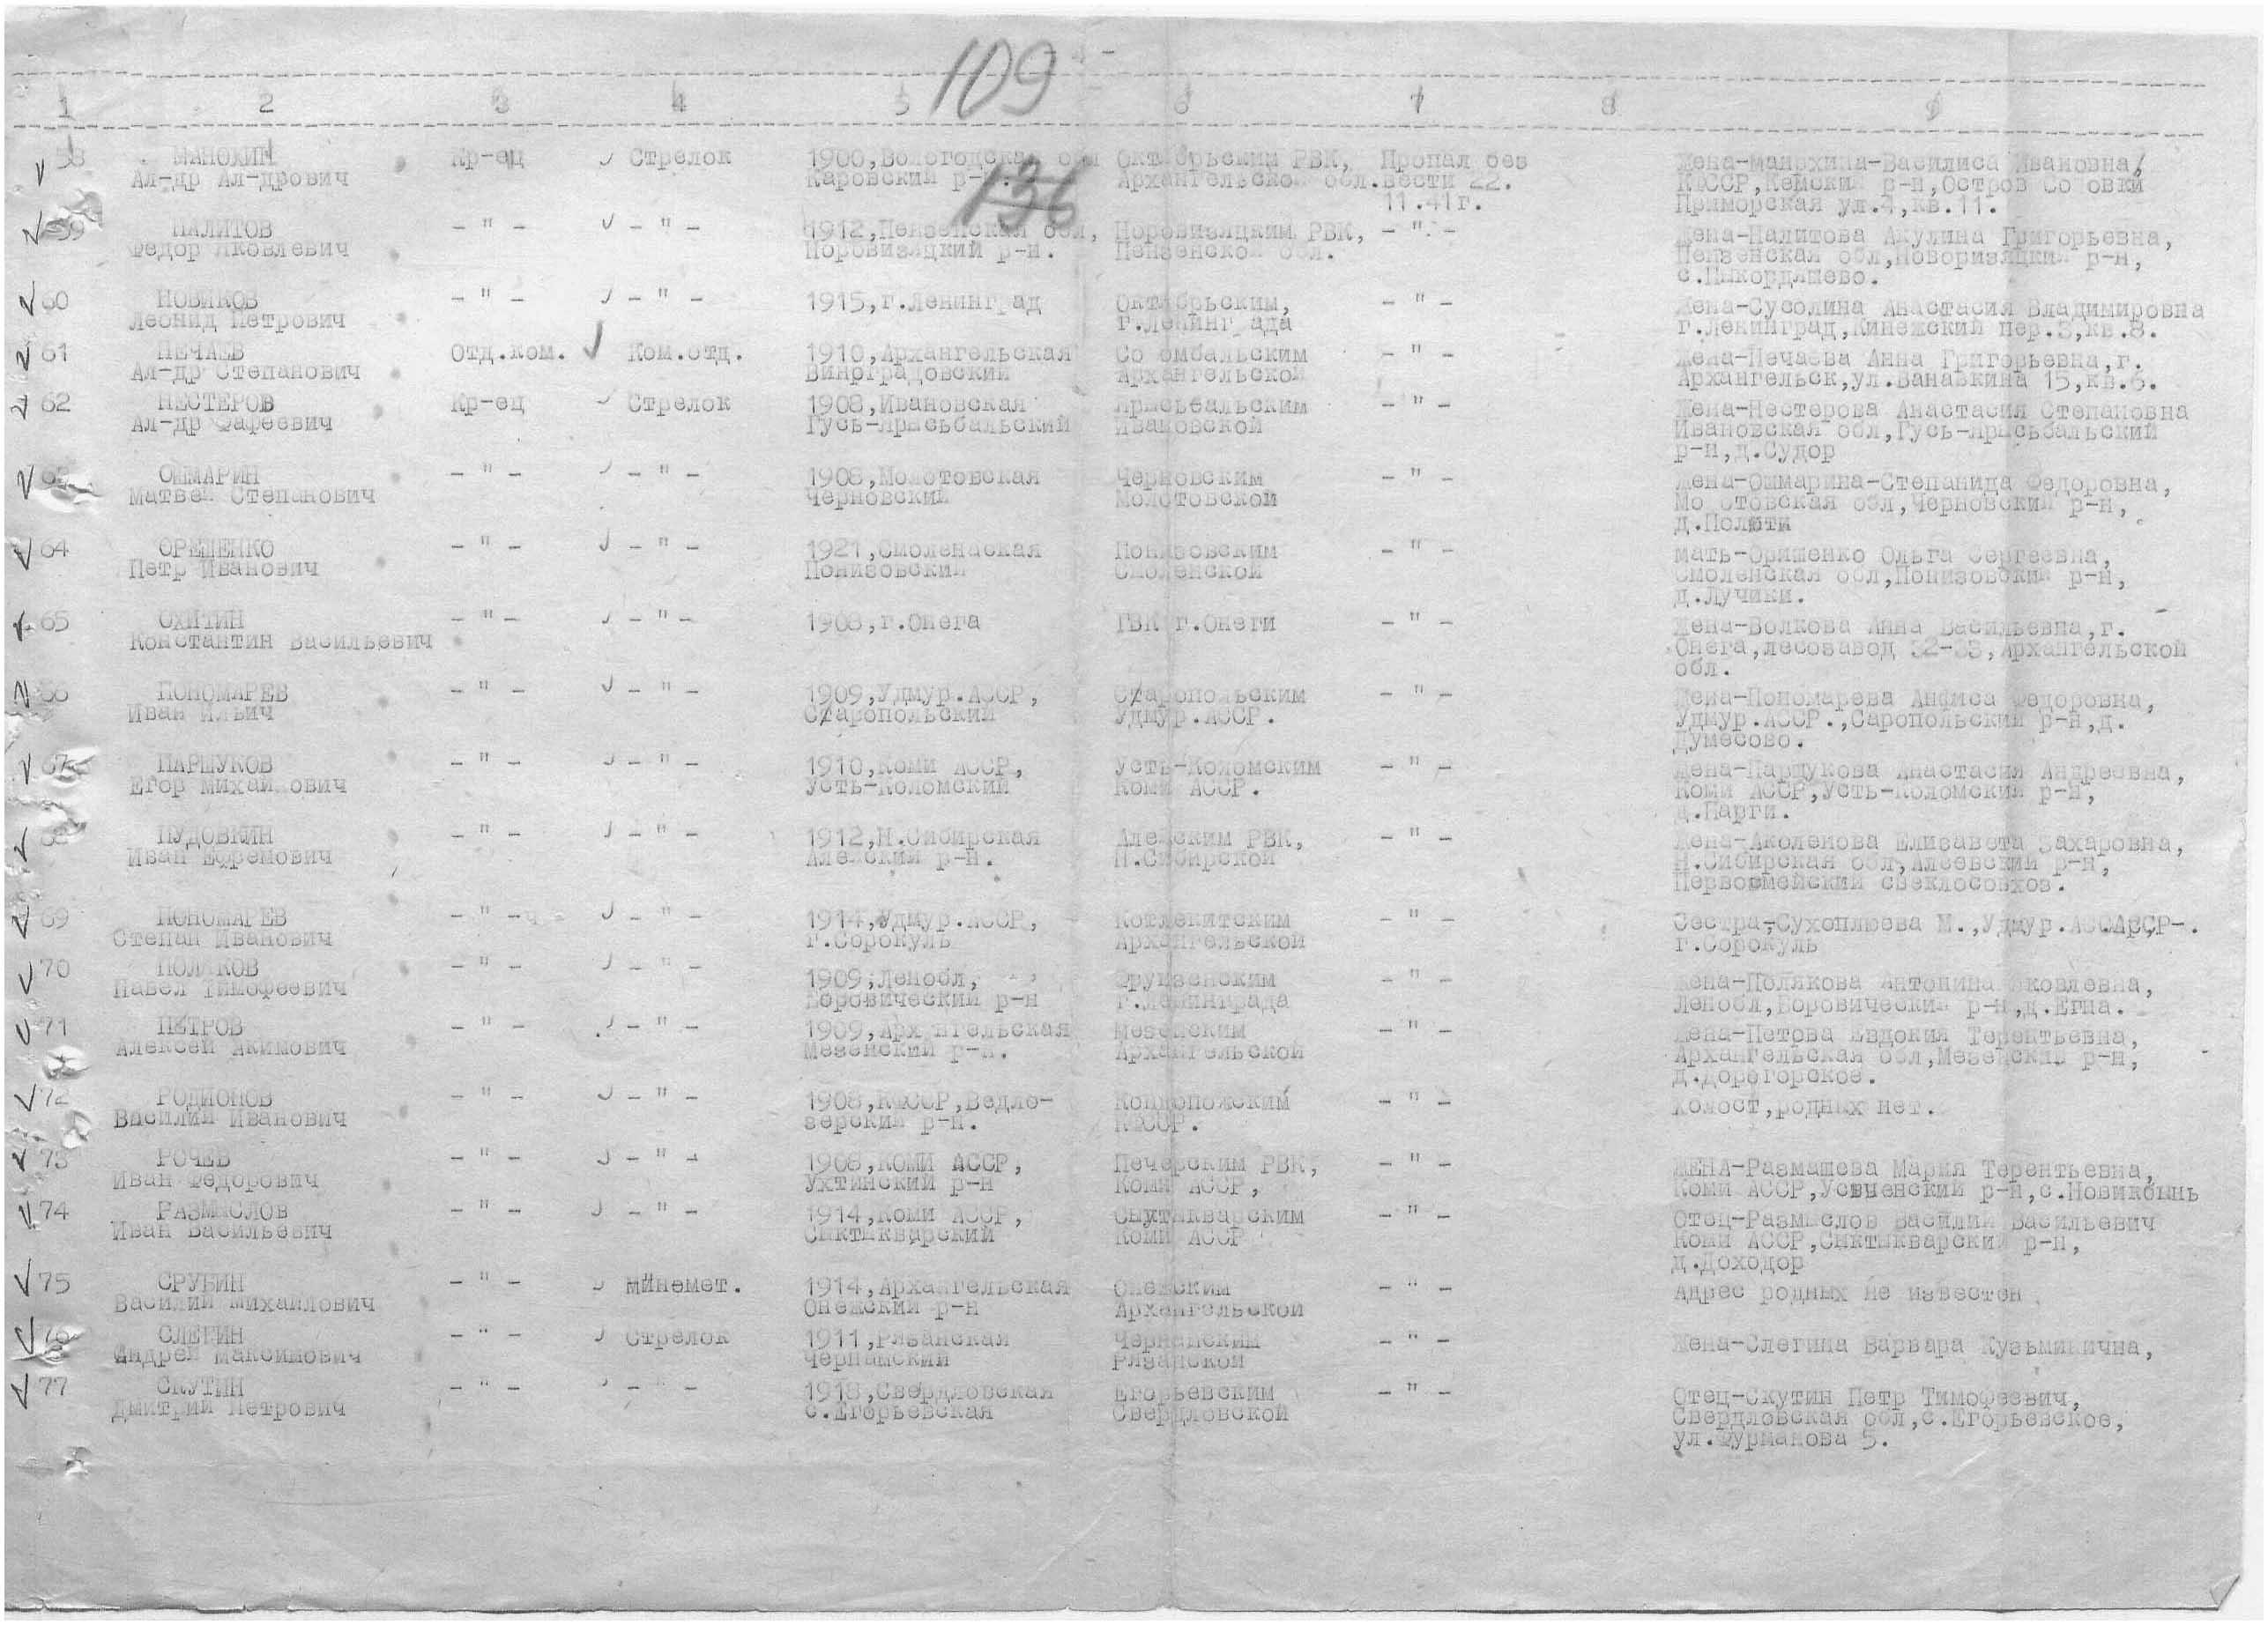 109
1 2 3 4 5 6 7 8 9
136
58 МАНОХИН Кр-ец Стрелок 1900, Вологодская обл Октябрьским РВК, Пропал без Жена-Манохина-Василиса Ивановна,
Ал-др Ал-дрович Каровский р- Архангельской обл. вести 22. КФССР, Кемский р-н, Остров Соловки
11.41г. Приморская ул.4, кв.11.
59 НАЛИТОВ - " - - " - 1912, Пензенская обл, Норовизяцким РВК, - " - Жена-Налитова Акулина Григорьевна,
Федор Яковлевич Норовизяцкий р-н. Пензенской обл. Пензенская обл, р-н,
60 НОВИКОВ - " - - " - 1915, г.Ленинград Октябрьским, - " - Жена-Сусолина Анастасия Владимировна
Леонид Петрович г.Ленинграда г.Ленинград, Кинежский пер.3, кв.8.
61 НЕЧАЕВ Отд.ком. Ком.отд. 1910, Архангельская Соломбальским - " - Жена-Нечаева Анна Григорьевна, г.
Ал-др Степанович Виноградовский Архангельской Архангельск, ул. 15, кв.6.
62 НЕСТЕРОВ Кр-ец Стрелок 1908, Ивановская - " - Жена-Нестерова Анастасия Степановна
Ал-др Фафеевич Ивановской Ивановская обл,
р-н, д.Судор
63 ОШМАРИН - " - - " - 1908, Молотовская Черновским - " - Жена-Ошмарина-Степанида Федоровна,
Матвей Степанович Черновский Молотовской Молотовская обл, Черновский р-н,
64 ОРЕШЕНКО - " - - " - 1921, Смоленаская Понизовским - " - Мать-Оришенко Ольга Сергеевна,
Петр Иванович Понизовский Смоленской Смоленская обл, Понизовский р-н,
д.Лучики.
65 ОХИТИН - " - - " - 1908, г.Онега ГВК г.Онеги - " - Жена-Волкова Анна Васильевна, г.
Константин Васильевич Онега, лесозавод 32-33, Архангельской
обл.
66 ПОНОМАРЕВ - " - - " - 1909, Удмур.АССР, Старопольским - " - Жена-Пономарева Анфиса Федоровна,
Иван Ильич Старопольский Удмур.АССР. Удмур.АССР., Саропольский р-н, д.
Думесово.
67 ПАРШУКОВ - " - - " - 1910, Коми АССР, Усть-Коломским - " - Жена-Паршукова Анастасия Андреевна,
Егор Михайлович Усть-Коломский Коми АССР. Коми АССР, Усть-Коломский р-н,
д.Парги.
68 ПУДОВКИН - " - - " - 1912, Н.Сибирская Алейским РВК, - " - Жена-Аколенова Елисавета Захаровна,
Иван Ефремович Алейский р-н. Н.Сибирской Н.Сибирская обл, Алеевский р-н,
Первоомейский свеклосовхоз.
69 ПОНОМАРЕВ - " - - " - 1914, Удмур.АССР, Котлекитским - " - Сестра-Сухоплюева М., Удмур.
Степан Иванович г.Сорокуль Архангельской г.Сорокуль
70 ПОЛЯКОВ - " - - " - 1909, Ленобл, Фрунзенским - " - Жена-Полякова Антонина Яковлевна,
Павел Тимофеевич Боровический р-н г.Ленинграда Ленобл, Боровический р-н, д.Егла.
71 ПЕТРОВ - " - - " - 1909, Архангельская Мезенским - " - Жена-Петова Евдокия Терентьевна,
Алексей Акимович Мезенский р-н. Архангельской Архангельская обл, Мезенский р-н,
д.Дорогорское.
72 РОДИОНОВ - " - - " - 1908, КФССР, Ведло- Кондопожским - " - Холост, родных нет.
Василий Иванович зерский р-н. КФССР.
73 РОЧЕВ - " - - " - 1908, КОМИ АССР, Печерским РВК, - " - ЖЕНА-Размашева Мария Терентьевна,
Иван Федорович Ухтинский р-н Коми АССР, Коми АССР, р-н, с.
74 РАЗМЫСЛОВ - " - - " - 1914, Коми АССР, Сыктыкварским - " - Отец-Размыслов Василий Васильевич
Иван Васильевич Сыктыкварский Коми АССР Коми АССР, Сыктыкварский р-н,
д.Доходор
75 СРУБИН - " - Минемет. 1914, Архангельская Онежским - " - Адрес родных не известен
Василий Михайлович Онежский р-н Архангельской
76 СЛЕГИН - " - Стрелок 1911, Рязанская Чернамским - " - Жена-Слегина Варвара Кузьминична,
Андрей Максимович Чернамский Рязанской
77 СКУТИН - " - - " - 1918, Свердловская Егорьевским - " - Отец-Скутин Петр Тимофеевич,
Дмитрий Петрович с.Егорьевская Свердловской Свердловская обл, с.Егорьевское,
ул.Фурманова 5.